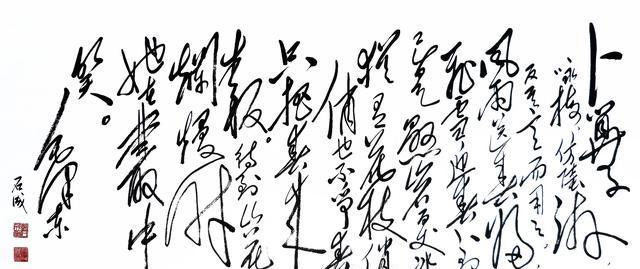 卜算子
咏梅，仿陆游
反其意而用之
风雨送春归
飞雪迎春到
已是悬崖百丈冰
犹有花枝俏
俏也不争春
只把春来
报。待到山花
烂漫时
她在丛中
笑。
毛泽东
石成